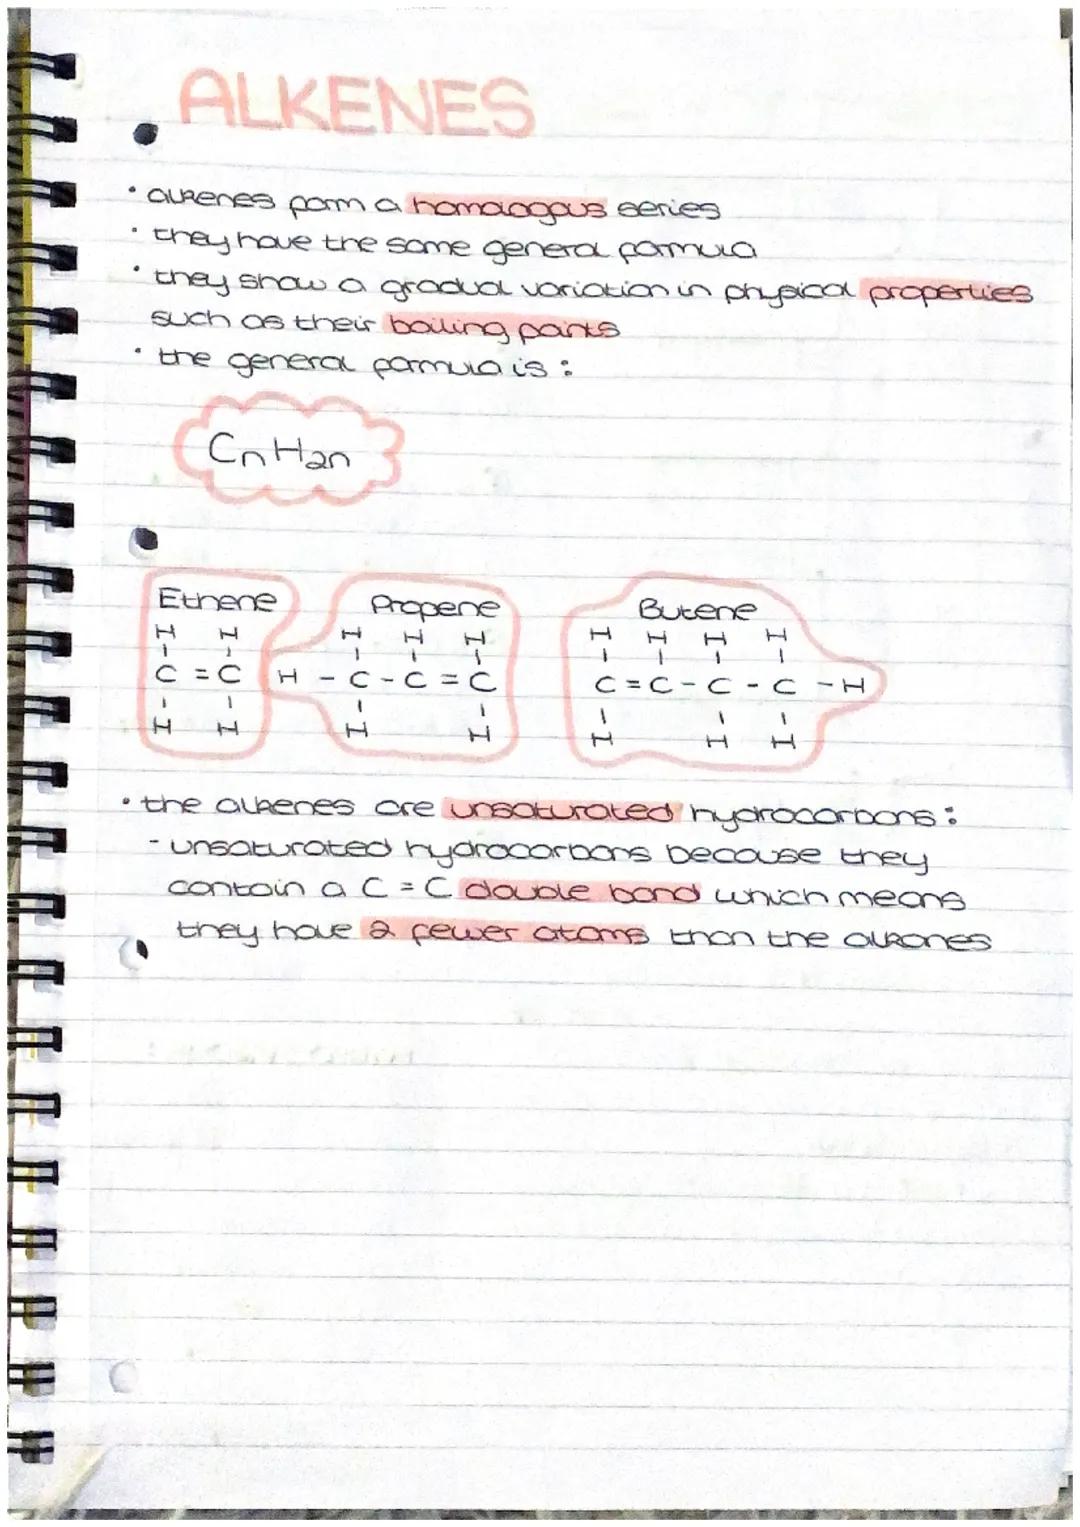 ALKENES
• alkenes form a homologous series
• they have the same general formula
• they show a gradual variation in physical properties
such as their boiling points
• the general formula is :
CnH2n
Ethene Propene Butene
H H H H H H H H H
C = C H - C - C = C C = C - C - C - H
H H H H H H H
• the alkenes are unsaturated hydrocarbons :
- unsaturated hydrocarbons because they
contain a C = C double bond which means
they have 2 fewer atoms than the alkanes